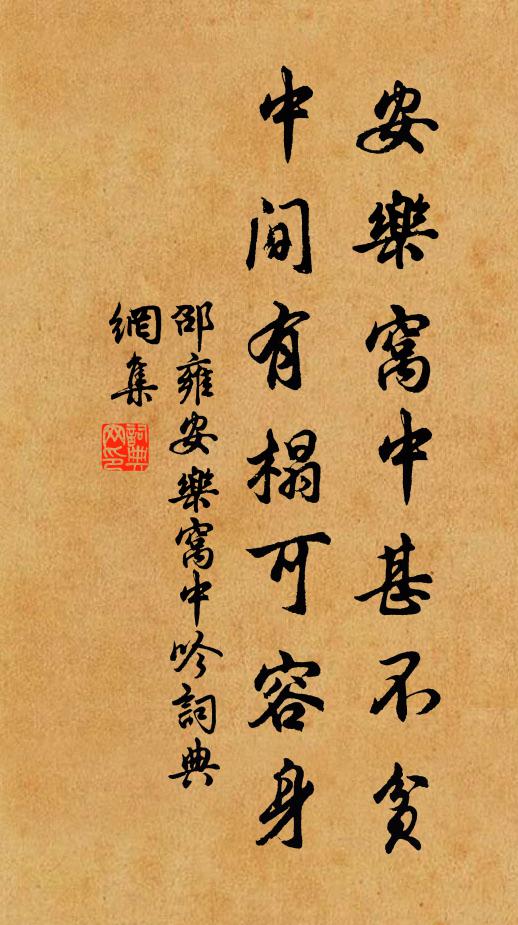 安樂窩中甚不貧
中間有榻可容身
邵雍安樂窩中吟詞典
網集
詞典
网印